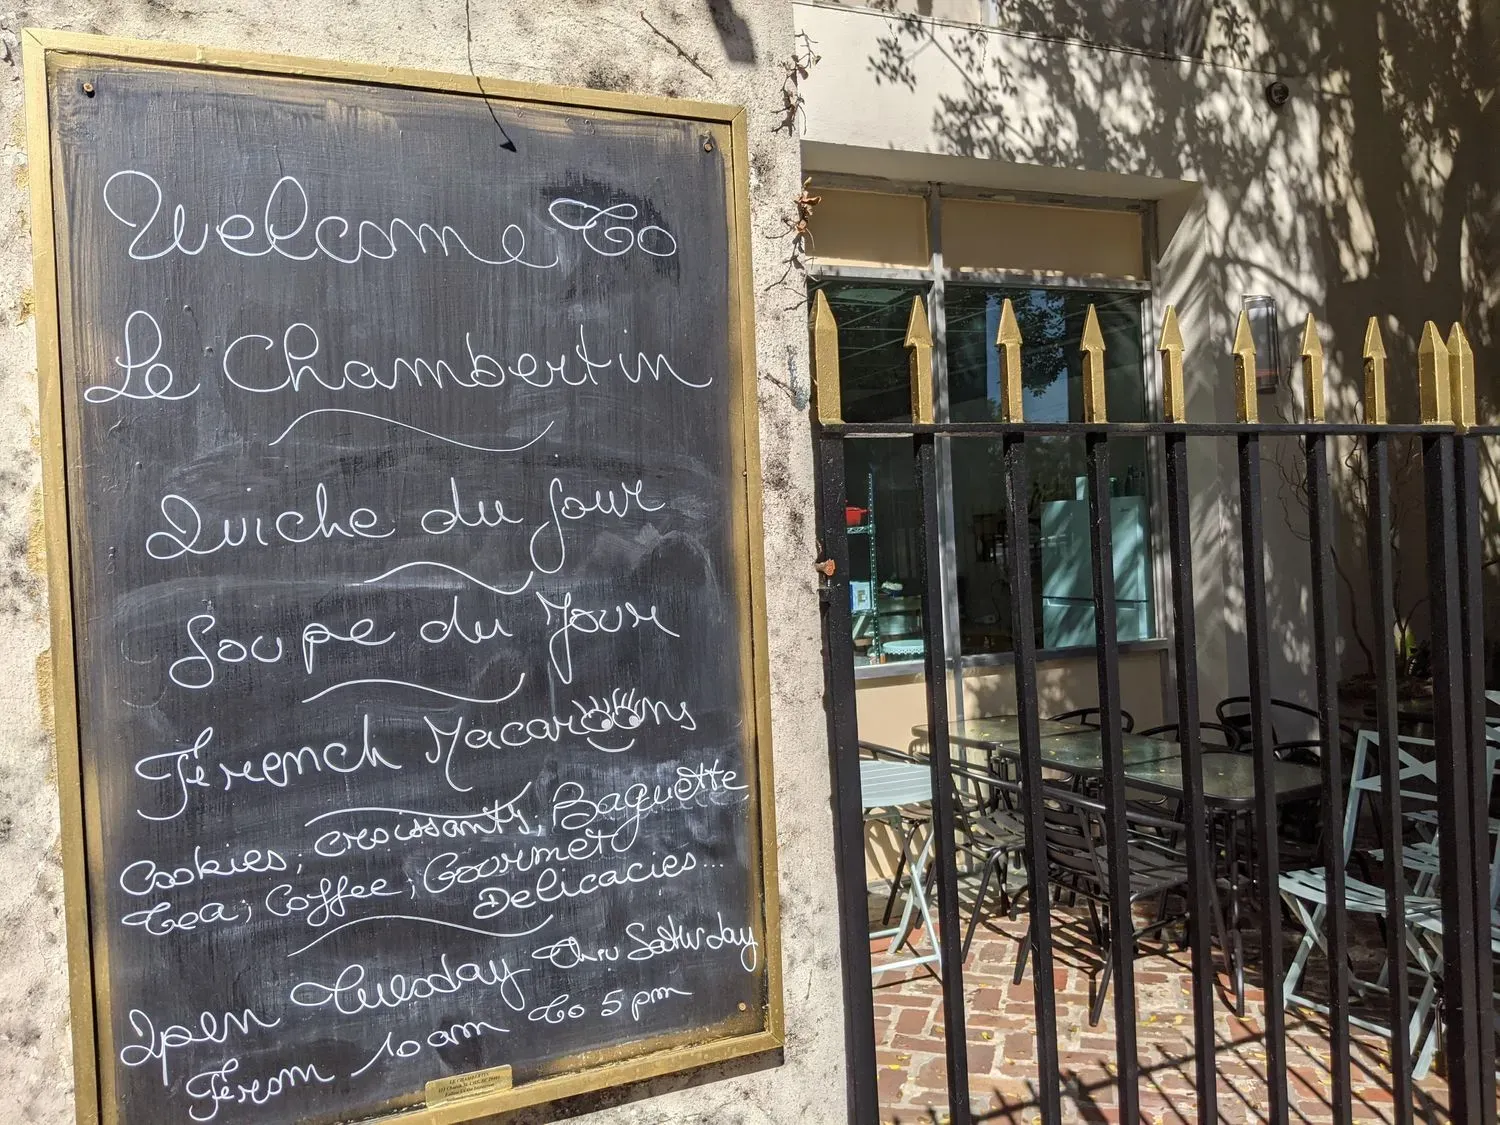 Welcome To
Le Chambertin
Quiche du jour
Soupe du Jour
French Macaroons
Cookies, croissants, Baguette
Tea; Coffee; Gourmet
Delicacies...
Open Tuesday thru Saturday
From 10am To 5pm
LE CHAMBERTIN